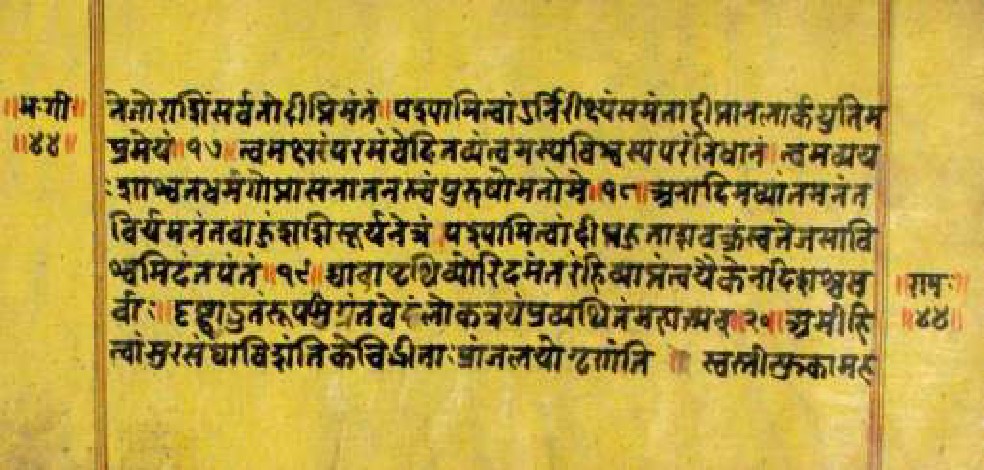 ॥भ॰गी॥ तेजोराशिंसर्वतोदीप्तिमंतं॥ पश्यामित्वांऽर्निरीक्ष्यंसमंताद्दीप्तानलार्कद्युतिम
॥४४॥ प्रमेयं॥१७॥ त्वमक्षरंपरमंवेदितव्यंत्वमस्यविश्वस्यपरंनिधानं॥ त्वमव्यय
ःशाश्वतधर्मगोप्तासनातनस्त्वंपुरुषोमतोमे॥१८॥ अनादिमध्यांतमनंत
विर्यमनंतबाहुंशशिसूर्यनेत्रं॥ पश्यामित्वांदीप्तहुताशवक्रंस्वतेजसावि
श्वमिदंतपंतं॥१९॥ द्यावापृथिव्योरिदमंतरंहिव्याप्तंत्वयैकेनदिशश्चस ॥रामः॥
र्वाः॥ दृष्ट्वाऽद्भुतंरूपमुग्रंतवेदंलोकत्रयंप्रव्यथितंमहात्मन्॥२०॥ अमीहि ॥४४॥
त्वांसुरसंघाविशंतिकेचिद्भीताःप्रांजलयोगृणंति॥ स्वस्तीत्युक्तामह